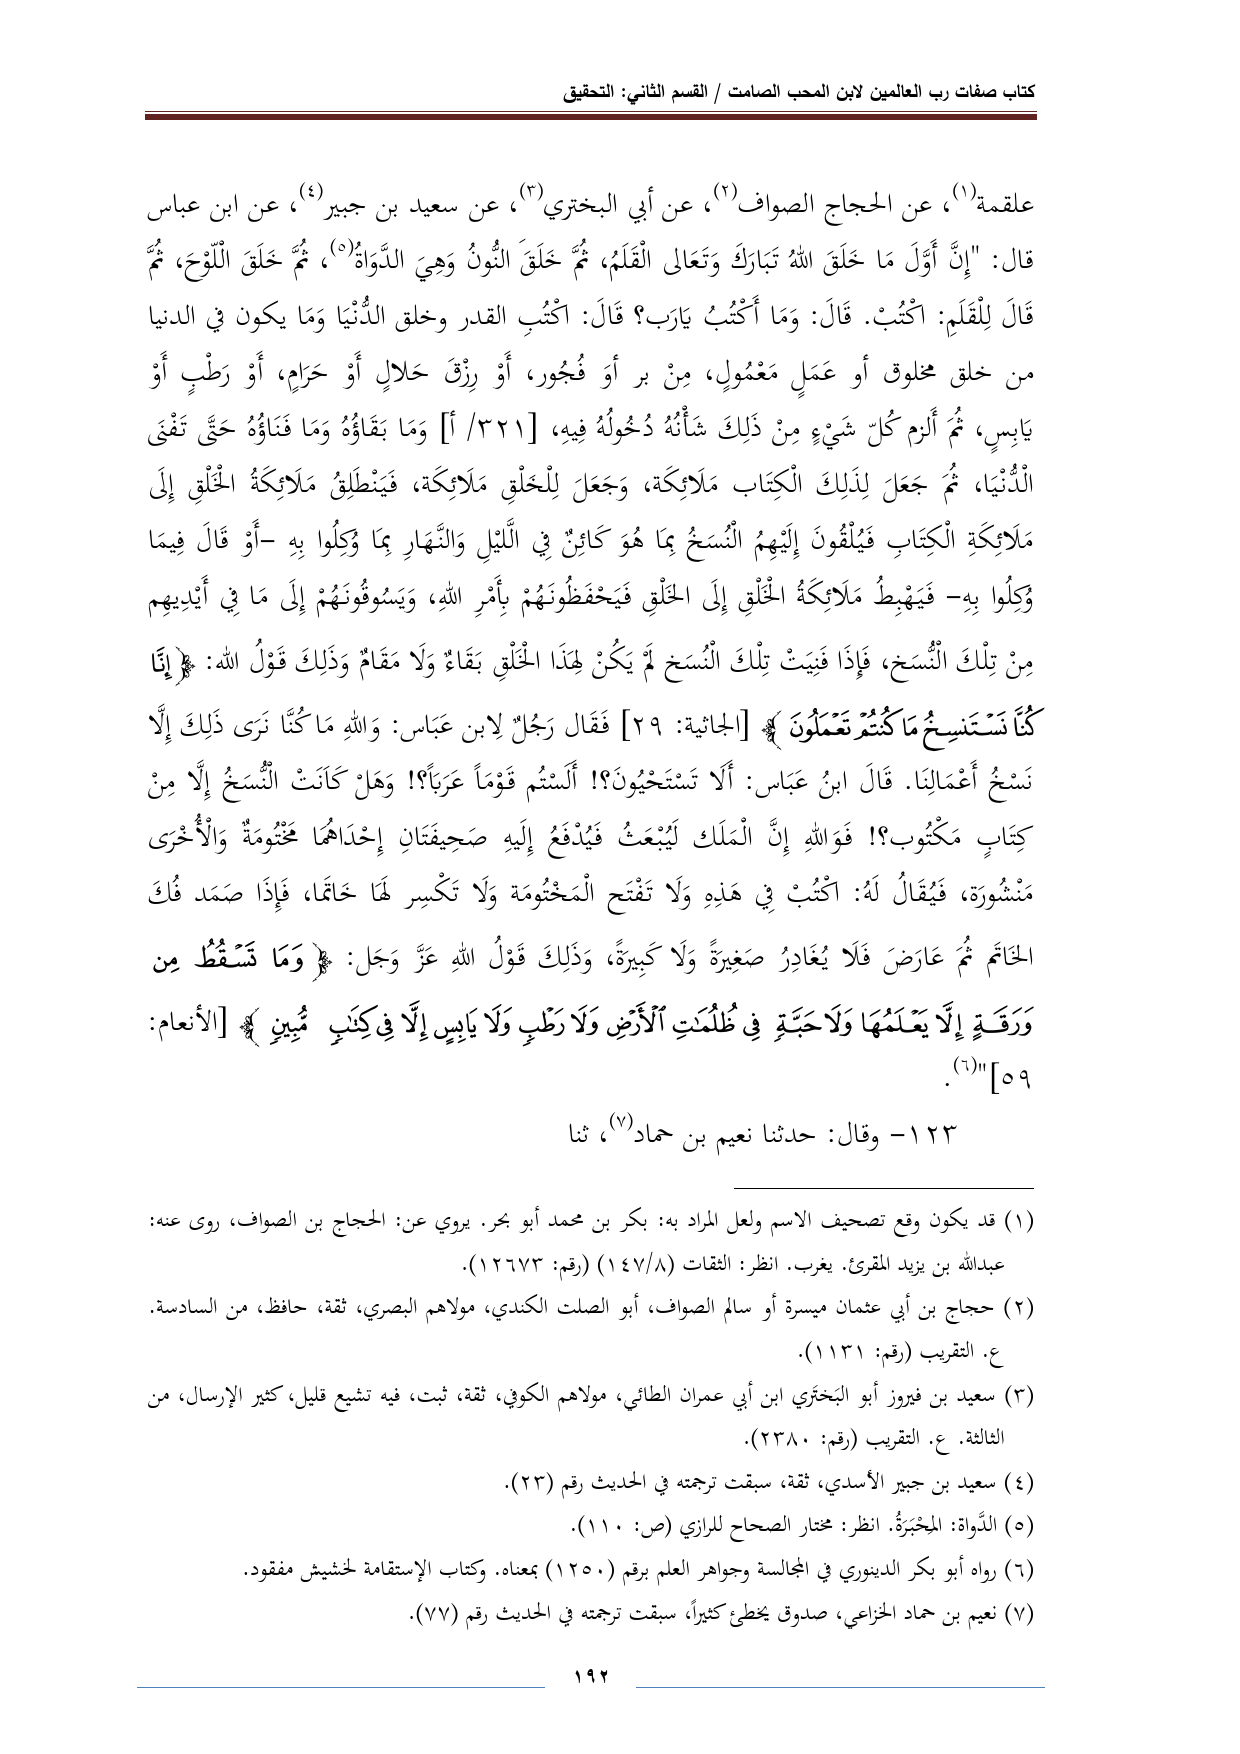 كتاب صفات رب العالمين لابن المحب الصامت / القسم الثاني: التحقيق
علقمة(١)، عن الحجاج الصواف(٢)، عن أبي البختري(٣)، عن سعيد بن جبير(٤)، عن ابن عباس
قال: "إِنَّ أَوَّلَ مَا خَلَقَ اللهُ تَبَارَكَ وَتَعَالى الْقَلَمُ، ثُمَّ خَلَقَ النُّونُ وَهِيَ الدَّوَاةُ(٥)، ثُمَّ خَلَقَ الْلّوْحَ، ثُمَّ
قَالَ لِلْقَلَمِ: اكْتُبْ. قَالَ: وَمَا أَكْتُبُ يَارَب؟ قَالَ: اكْتُبِ القدر وخلق الدُّنْيَا وَمَا يكون في الدنيا
من خلق مخلوق أو عَمَلٍ مَعْمُولٍ، مِنْ بر أوَ فُجُور، أَوْ رِزْقَ حَلالٍ أَوْ حَرَامٍ، أَوْ رَطْبٍ أَوْ
يَابِسٍ، ثُمَ أَلزم كُلّ شَيْءٍ مِنْ ذَلِكَ شَأْنُهُ دُخُولُهُ فِيهِ، [٣٢١/ أ] وَمَا بَقَاؤُهُ وَمَا فَنَاؤُهُ حَتَّى تَفْنَى
الْدُّنْيَا، ثُمَ جَعَلَ لِذَلِكَ الْكِتَاب مَلَائِكَة، وَجَعَلَ لِلْخَلْقِ مَلَائِكَة، فَيَنْطَلِقُ مَلَائِكَةُ الْخَلْقِ إِلَى
مَلَائِكَةِ الْكِتَابِ فَيُلْقُونَ إِلَيْهِمُ الْنُسَخُ بِمَا هُوَ كَائِنٌ فِي الَّليْلِ وَالنَّهَارِ بِمَا وُكِلُوا بِهِ –أَوْ قَالَ فِيمَا
وُكِلُوا بِهِ– فَيَهْبِطُ مَلَائِكَةُ الْخَلْقِ إِلَى الخَلْقِ فَيَحْفَظُونَهُمْ بِأَمْرِ اللهِ، وَيَسُوقُونَهُمْ إِلَى مَا فِي أَيْدِيهِم
مِنْ تِلْكَ الْنُّسَخ، فَإِذَا فَنِيَتْ تِلْكَ الْنُسَخ لَمْ يَكُنْ لِهَذَا الْخَلْقِ بَقَاءٌ وَلَا مَقَامٌ وَذَلِكَ قَوْلُ الله: ﴿ إِنَّا
كُنَّا نَسْتَنسِخُ مَا كُنتُمْ تَعْمَلُونَ ﴾ [الجاثية: ٢٩] فَقَال رَجُلٌ لِابن عَبَاس: وَاللهِ مَا كُنَّا نَرَى ذَلِكَ إِلَّا
نَسْخُ أَعْمَالِنَا. قَالَ ابنُ عَبَاس: أَلَا تَسْتَحْيُونَ؟! أَلَسْتُم قَوْمَاً عَرَبَاً؟! وَهَلْ كَاَنَتْ الْنُّسَخُ إِلَّا مِنْ
كِتَابٍ مَكْتُوب؟! فَوَاللهِ إِنَّ الْمَلَك لَيُبْعَثُ فَيُدْفَعُ إِلَيهِ صَحِيفَتَانِ إِحْدَاهُمَا مَخْتُومَةٌ وَالْأُخْرَى
مَنْشُورَة، فَيُقَالُ لَهُ: اكْتُبْ فِي هَذِهِ وَلَا تَفْتَح الْمَخْتُومَة وَلَا تَكْسِر لَهَا خَاتمَا، فَإِذَا صَمَد فُكَ
الخَاتَم ثُمَ عَارَضَ فَلَا يُغَادِرُ صَغِيرَةً وَلَا كَبِيرَةً، وَذَلِكَ قَوْلُ اللهِ عَزَّ وَجَل: ﴿ وَمَا تَسْقُطُ مِن
وَرَقَةٍ إِلَّا يَعْلَمُهَا وَلَا حَبَّةٍ فِي ظُلُمَٰتِ ٱلْأَرْضِ وَلَا رَطْبٍ وَلَا يَابِسٍ إِلَّا فِي كِتَٰبٍ مُّبِينٍ ﴾ [الأنعام:
٥٩]"(٦).
١٢٣– وقال: حدثنا نعيم بن حماد(٧)، ثنا
(١) قد يكون وقع تصحيف الاسم ولعل المراد به: بكر بن محمد أبو بحر. يروي عن: الحجاج بن الصواف، روى عنه:
عبدالله بن يزيد المقرئ. يغرب. انظر: الثقات (١٤٧/٨) (رقم: ١٢٦٧٣).
(٢) حجاج بن أبي عثمان ميسرة أو سالم الصواف، أبو الصلت الكندي، مولاهم البصري، ثقة، حافظ، من السادسة.
ع. التقريب (رقم: ١١٣١).
(٣) سعيد بن فيروز أبو البَختَري ابن أبي عمران الطائي، مولاهم الكوفي، ثقة، ثبت، فيه تشيع قليل، كثير الإرسال، من
الثالثة. ع. التقريب (رقم: ٢٣٨٠).
(٤) سعيد بن جبير الأسدي، ثقة، سبقت ترجمته في الحديث رقم (٢٣).
(٥) الدَّواة: المِحْبَرَةُ. انظر: مختار الصحاح للرازي (ص: ١١٠).
(٦) رواه أبو بكر الدينوري في المجالسة وجواهر العلم برقم (١٢٥٠) بمعناه. وكتاب الإستقامة لخشيش مفقود.
(٧) نعيم بن حماد الخزاعي، صدوق يخطئ كثيراً، سبقت ترجمته في الحديث رقم (٧٧).
١٩٢